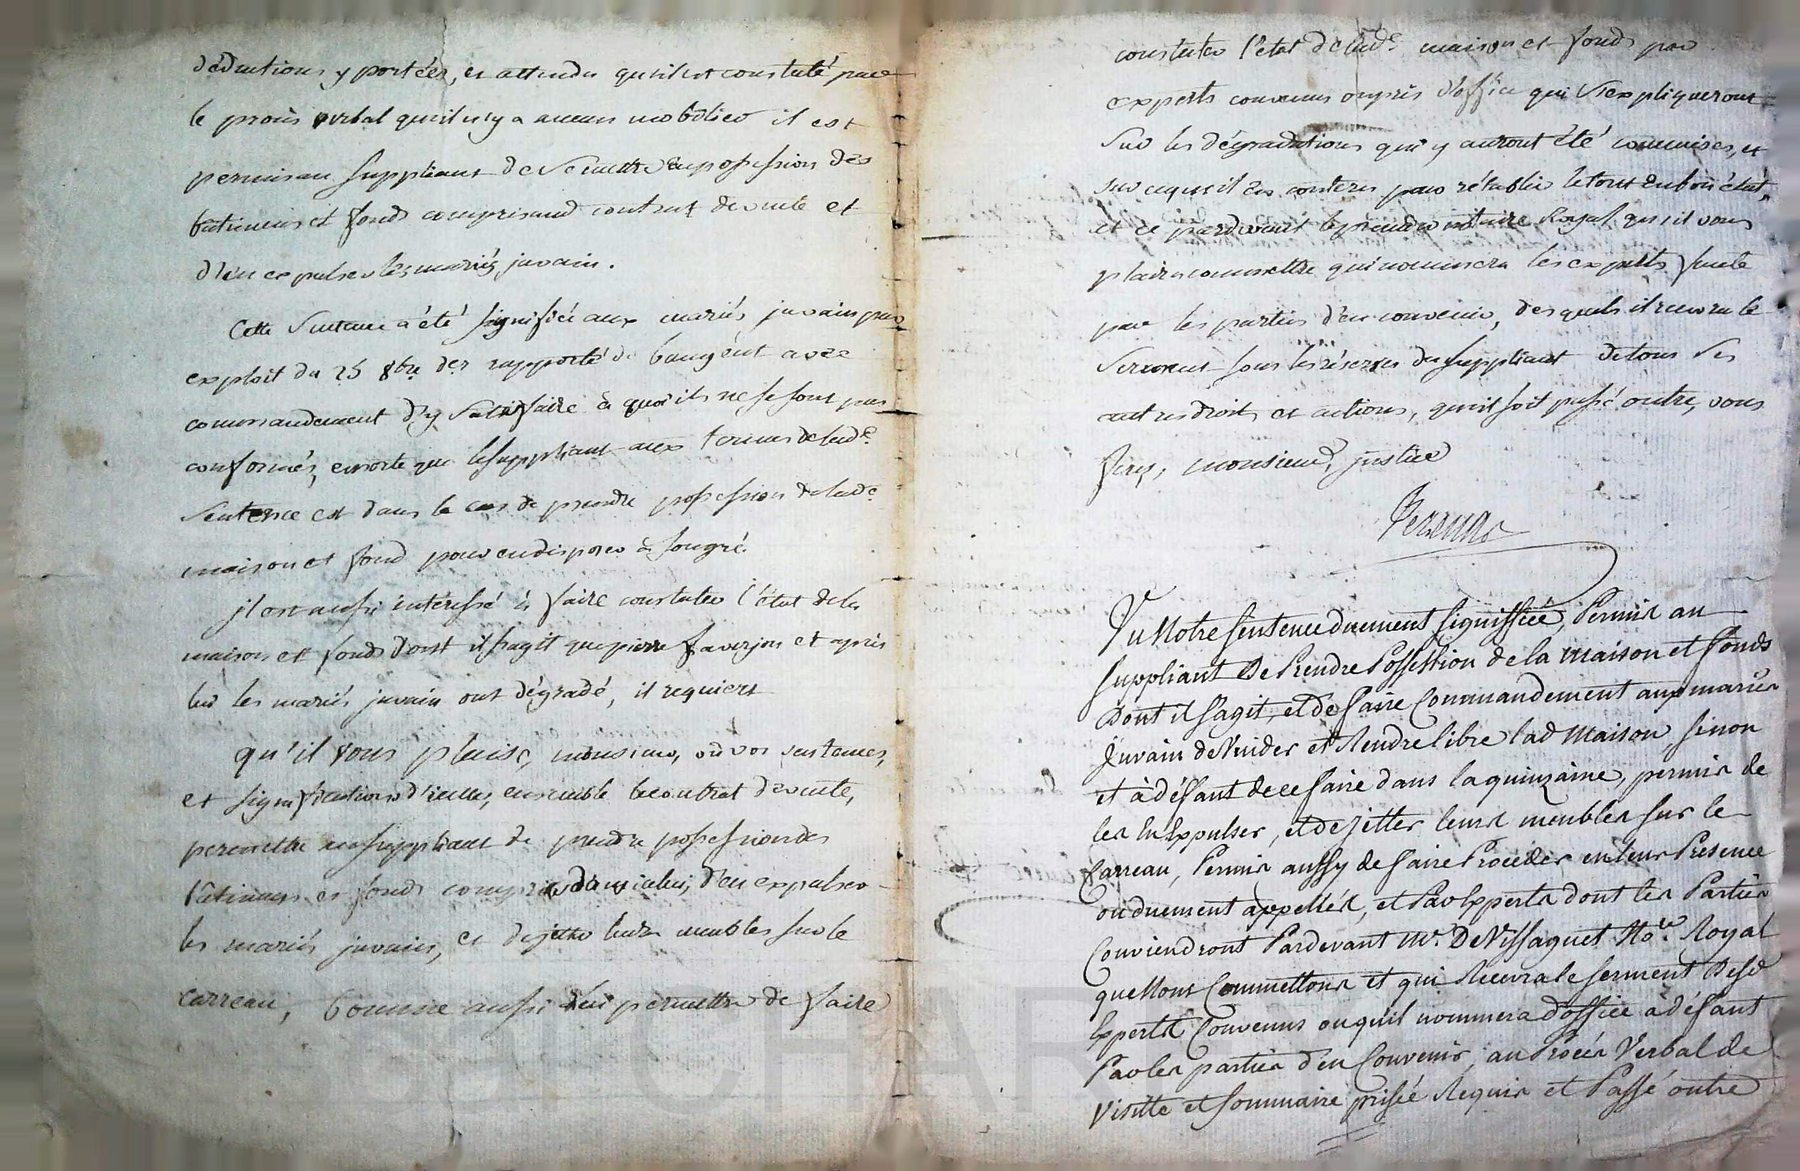 déductions y portées, et attendu qu'il est constaté par
le procès verbal qu'il n'y a aucun mobilier il est
permis au suppliant de se mettre en possession des
batimens et fonds compris aud contrat de vente et
d'en expulser les mariés juvain.
Cette sentence a été signifiée aux mariés juvain par
exploit du 25 8bre der rapporté de baugent avec
commandement d'y satisfaire à quoi ils ne se sont pas
conformés, ensorte que le suppliant aux termes de lade
sentence est dans le cas de prendre possession de lade
maison et fond pour en disposer à son gré.
il est aussi intéressé à faire constater l'état de la
maison et fonds dont il s'agit que pierre faverjon et après
lui les mariés juvain ont dégradé, il requiert
qu'il vous plaise, monsieur, vu vos sentences,
et significations d'icelles, ensemble le contrat de vente,
permettre au suppliant de prendre possession des
batimens et fonds compris dans icelui, d'en expulser
les mariés juvain, et de jetter leurs meubles sur le
carreau, Comme aussi lui permettre de faire
constater l'état de lade maison et fonds par
experts convenus ou pris d'office qui s'expliqueront
sur les dégradations qui y auront été commises, et
sur ce qu'il en coutera pour rétablir le tout en bon état,
et ce pardevant le premier notaire Royal qu'il vous
plaira commettre qui nommera les experts faute
par les parties d'en convenir, desquels il recevra le
serment sous les réserves du suppliant de tous ses
autres droits et actions, qu'il soit passé outre, vous
ferez, monsieur, justice
Vu Notre sentence duement signiffiée, Permis au
suppliant De Prendre Possession de la maison et fonds
Dont il s'agit, et de faire Commandement aux mariés
Juvain de Vuider et Rendre libre lad maison, sinon
et à défaut de ce faire dans la quinzaine, permis de
les En Expulser, et de jetter leurs meubles sur le
Carreau, Permis aussy de faire Proceder en leur Presence
ou duement appellés, et Par Experts dont les Parties
Conviendront Pardevant Me. De Vissaguet Nore. Royal
que Nous Commettons et qui Recevra le serment Desd
Experts Convenus ou qu'il nommera d'office à défaut
Par les parties d'en Convenir, au Procés Verbal de
Visitte et sommaire prisée Requis et Passé outre